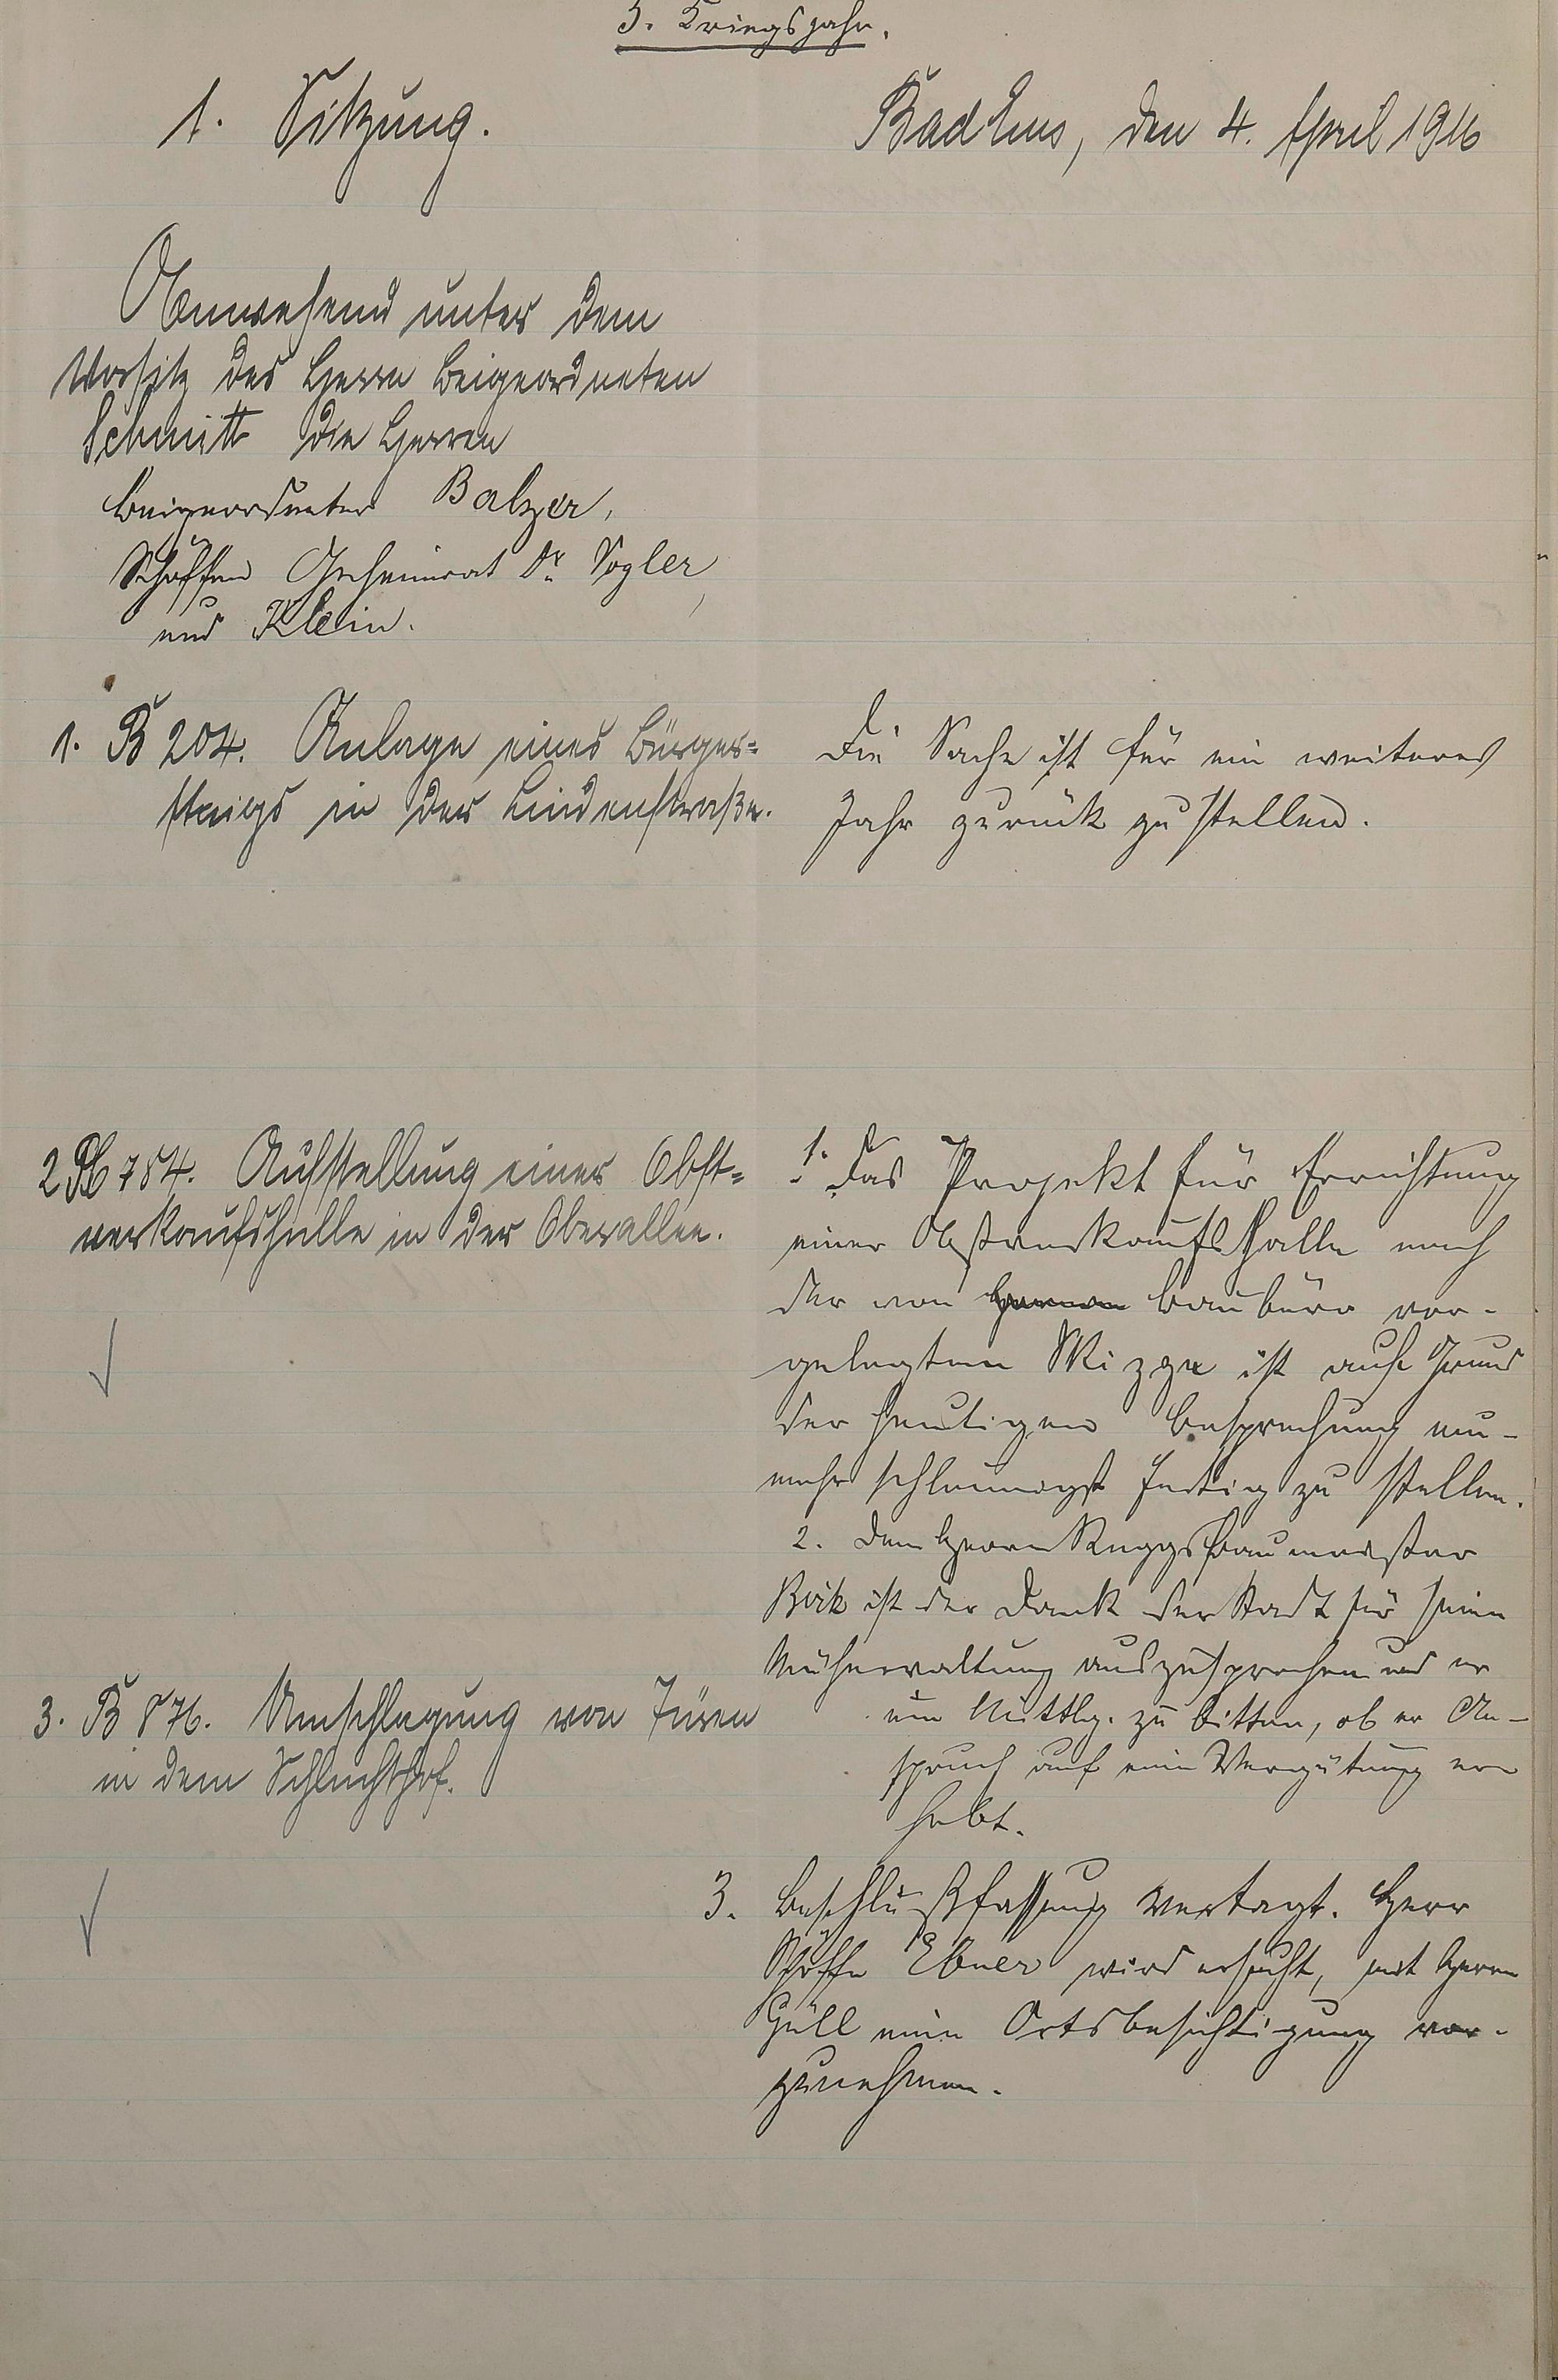 3. Kriegsjahr.
1. Sitzung.
Bad Ems, den 4. April 1916
Anwesend unter dem
Vorsitz des Herrn Beigeordneten
Schmitt die Herren
Beigeordneter Balzer,
Schöffen Geheimrat Dr. Vogler,
und Klein.
1. B 204. Anlage eines Bürger=
steigs in der Lindenstraße.
Die Sache ist für ein weiteres
Jahr zurück zu stellen.
2 B 784. Aufstellung einer Obst=
verkaufshalle in der Oberallee.
1. Das Projekt für Errichtung
einer Obstverkaufshalle nach
der von Baubüro vor-
gelegten Skizze ist auf Grund
der heutigen Besprechung nu-
mehr schleunigst fertig zu stellen.
2. Dem Herrn Reggsbaumeister
Bock ist der Dank der Stadt für seine
Mühewaltung auszusprechen und er
um Mittlg. zu bitten, ob er An-
spruch auf eine Vergütung er-
hebt.
3. B 876. Umschlagung von Türen
in dem Schlachthof.
3. Beschlußfassung vertagt. Herr
Schöffe Ebner wird ersucht, mit Herrn
Güll eine Ortsbesichtigung vor-
zunehmen.